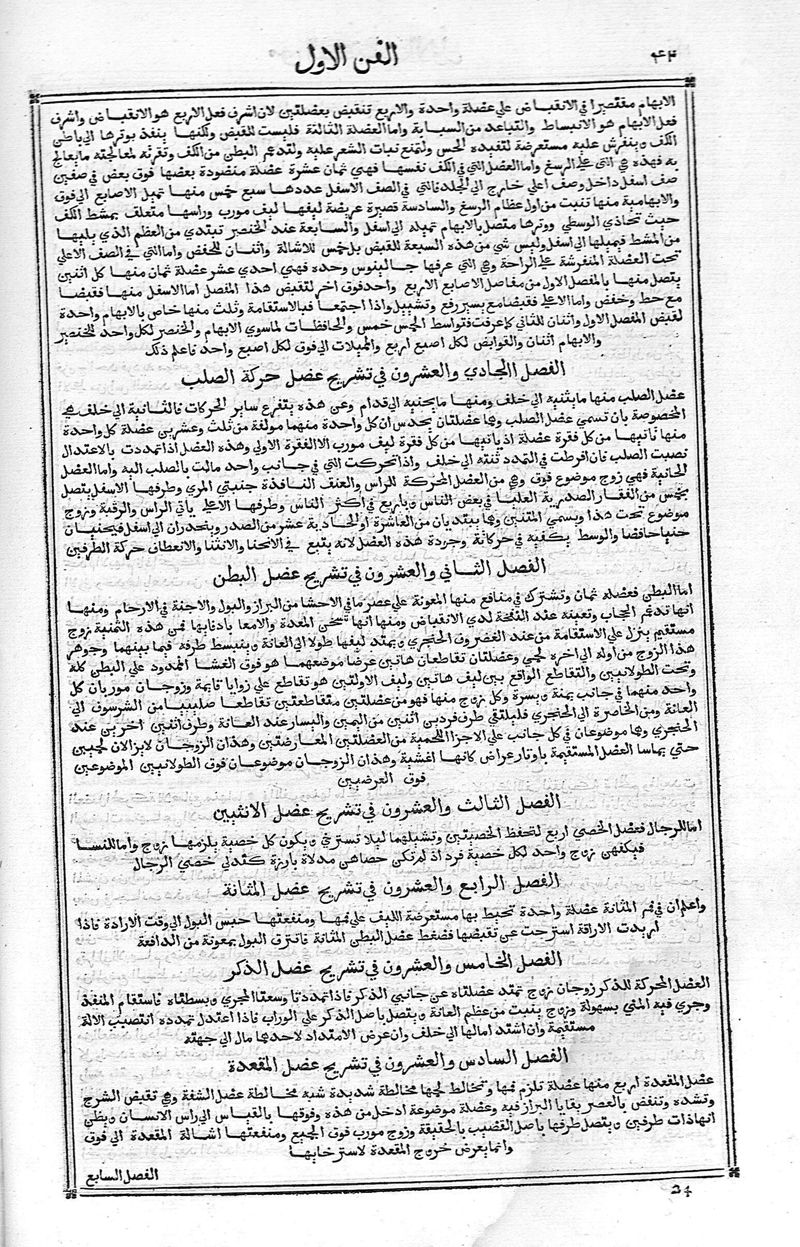 الفن الاول
الابهام مقتصرا في الانقباض علي عضلة واحدة والاربع تنقبض بعضلتين لان اشرف فعل الاربع هو الانقباض واشرف
فعل الابهام هو الانبساط والتباعد من السبابة واما العضلة الثالثة فليست للقبض ولكنها ينفذ بوترها الي باطن
الكف وينفرش عليه مستعرضة لتفيده الحس ولتمنع نبات الشعر عليه ولتدعم البطن من الكف وتقويه لمعالجته ما يعالج
به فهذه هي التي علي الرسغ واما العضل التي في الكف نفسها فهي ثمان عشرة عضلة منضودة بعضها فوق بعض في صفين
صف اسفل داخل وصف اعلي خارج الي الجلد فالتي في الصف الاسفل عددها سبع خمس منها تميل الاصابع الي فوق
والابهامية منها تنبت من اول عظام الرسغ والسادسة قصيرة عريضة ليفها ليف مورب وراسها متعلق بمشط الكف
حيث تحاذي الوسطي ووترها متصل بالابهام تميله الي اسفل والسابعة عند الخنصر تبتدي من العظم الذي يليها
من المشط فيميلها الي اسفل وليس شي من هذه السبعة للقبض بل خمس للاشالة واثنان للخفض واما التي في الصف الاعلي
تحت العضلة المنفرشة علي الراحة وهي التي عرفها جالينوس وحده فهي احدي عشر عضلة ثمان منها كل اثنين
يتصل منها بالمفصل الاول من مفاصل الاصابع الاربع واحد فوق اخر لتقبض هذا المفصل اما الاسفل منها فقبضا
مع حط وخفض واما الاعلي فقبضا مع يسير رفع وتشييل واذا اجتمعا فبالاستقامة وثلث منها خاص بالابهام واحدة
لقبض المفصل الاول واثنان للثاني كما عرفت فتواسط الخمس خمس والخافظات لما سوي الابهام والخنصر لكل واحد للخنصر
والابهام اثنان والقوابض لكل اصبع اربع والمميلات الي فوق لكل اصبع واحد فاعلم ذلك
الفصل الحادي والعشرون في تشريح عضل حركة الصلب
عضل الصلب منها ما يثنيه الي خلف ومنها ما يحنيه الي قدام وعن هذه يتفرع ساير الحركات فالثانية الي خلف هي
المخصوصة بان تسمي عضل الصلب وهما عضلتان يحدس ان كل واحدة منهما مولفة من ثلث وعشرين عضلة كل واحدة
منها تاتيها من كل فقرة عضلة اذ ياتيها من كل فقرة ليف مورب الا الفقرة الاولي وهذه العضل اذا تمددت بالاعتدال
نصبت الصلب فان افرطت في التمدد ثنته الي خلف واذا تحركت التي في جانب واحد مالت بالصلب اليه واما العضل
الحانية فهي زوج موضوع فوق وهي من العضل المحركة للراس والعنف النافذة جنبتي المري وطرفها الاسفل يتصل
بخمس من الفقار الصدرية العليا في بعض الناس وباربع في اكثر الناس وطرفها الاعلي ياتي الراس والرقبة وزوج
موضوع تحت هذا ويسمي المتنين وهما يبتديان من العاشرة او الحادية عشر من الصدر وينحدران الي اسفل فيحنيان
حنيا خافضا والوسط يكفيه في حركاته وجردة هذه العضل لانه يتبع في الانحنا والانثنا والانعطاف حركة الطرفين
الفصل الثاني والعشرون في تشريح عضل البطن
اما البطن فعضله ثمان وتشترك في منافع منها المعونة علي عصر ما في الاحشا من البراز والبول والاجنة في الارحام ومنها
انها تدعم الحجاب وتعينه عند النفخة لدي الانقباض ومنها انها تسخن المعدة والامعا بادفايها فمن هذه الثمنية زوج
مستقيم ينزل علي الاستقامة من عند الغضروف الحنجري ويمتد ليفها طولا الي العانة وينبسط طرفه فيما بينهما وجوهر
هذا الزوج من اوله الي اخره لحمي وعضلتان تقاطعان هاتين عرضا موضعهما هو فوق الغشا الممدود علي البطن كله
وتحت الطولانيين والتقاطع الواقع بين ليف هاتين وليف الاولتين هو تقاطع علي زوايا قايمة وزوجان موربان كل
واحد منهما في جانب يمنة ويسرة وكل زوج منها فهو من عضلتين متقاطعتين تقاطعا صليبيا من الشرسوف الي
العانة ومن الخاصرة الي الحنجري فيلتقي طرف فردين اثنين من اليمين واليسار عند العانة وطرف اثنين اخرين عند
الحنجري وهما موضوعان في كل جانب علي الاجزا اللحمية من العضلتين المعارضتين وهذان الزوجان لا يزالان لحميين
حتي يماسا العضل المستقيمة باوتار عراض كانها اغشية وهذان الزوجان موضوعان فوق الطولانيين الموضوعين
فوق العرضيين
الفصل الثالث والعشرون في تشريح عضل الانثيين
اما للرجال فعضل الخصي اربع لتحفظ الخصيتين وتشيلهما ليلا تسترخي ويكون كل خصية يلزمها زوج واما للنسا
فيكفهن زوج واحد لكل خصية فرد اذ لم تكن خصاهن مدلاة بارزة كتدلي خصي الرجال
الفصل الرابع والعشرون في تشريح عضل المثانة
واعلم ان في فم المثانة عضلة واحدة تحيط بها مستعرضة الليف علي فمها ومنفعتها حبس البول الي وقت الارادة فاذا
اريدت الاراقة استرخت عن تقبضها فضغط عضل البطن المثانة فانزرق البول بمعونة من الدافعة
الفصل الخامس والعشرون في تشريح عضل الذكر
العضل المحركة للذكر زوجان زوج تمتد عضلتاه عن جانبي الذكر فاذا تمددتا وسعتا المجري وبسطتاه فاستقام المنفذ
وجري فيه المني بسهولة وزوج ينبت من عظم العانة ويتصل باصل الذكر علي الوراب فاذا اعتدل تمدده انتصبت الالة
مستقيمة وان اشتد امالها الي خلف وان عرض الامتداد لاحدهما مال الي جهته
الفصل السادس والعشرون في تشريح عضل المقعدة
عضل المقعدة اربع منها عضلة تلزم فمها وتخالط لحمها مخالطة شديدة شبه مخالطة عضل الشفة وهي تقبض الشرج
وتشده وتنفض بالعصر بقايا البراز فيه وعضلة موضوعة ادخل من هذه وفوقها بالقياس الي راس الانسان ويظن
انها ذات طرفين ويتصل طرفها باصل القضيب بالحقيقة وزوج مورب فوق الجميع ومنفعتها اشالة المقعدة الي فوق
وانما يعرض خروج المقعدة لاسترخايها
الفصل السابع
24